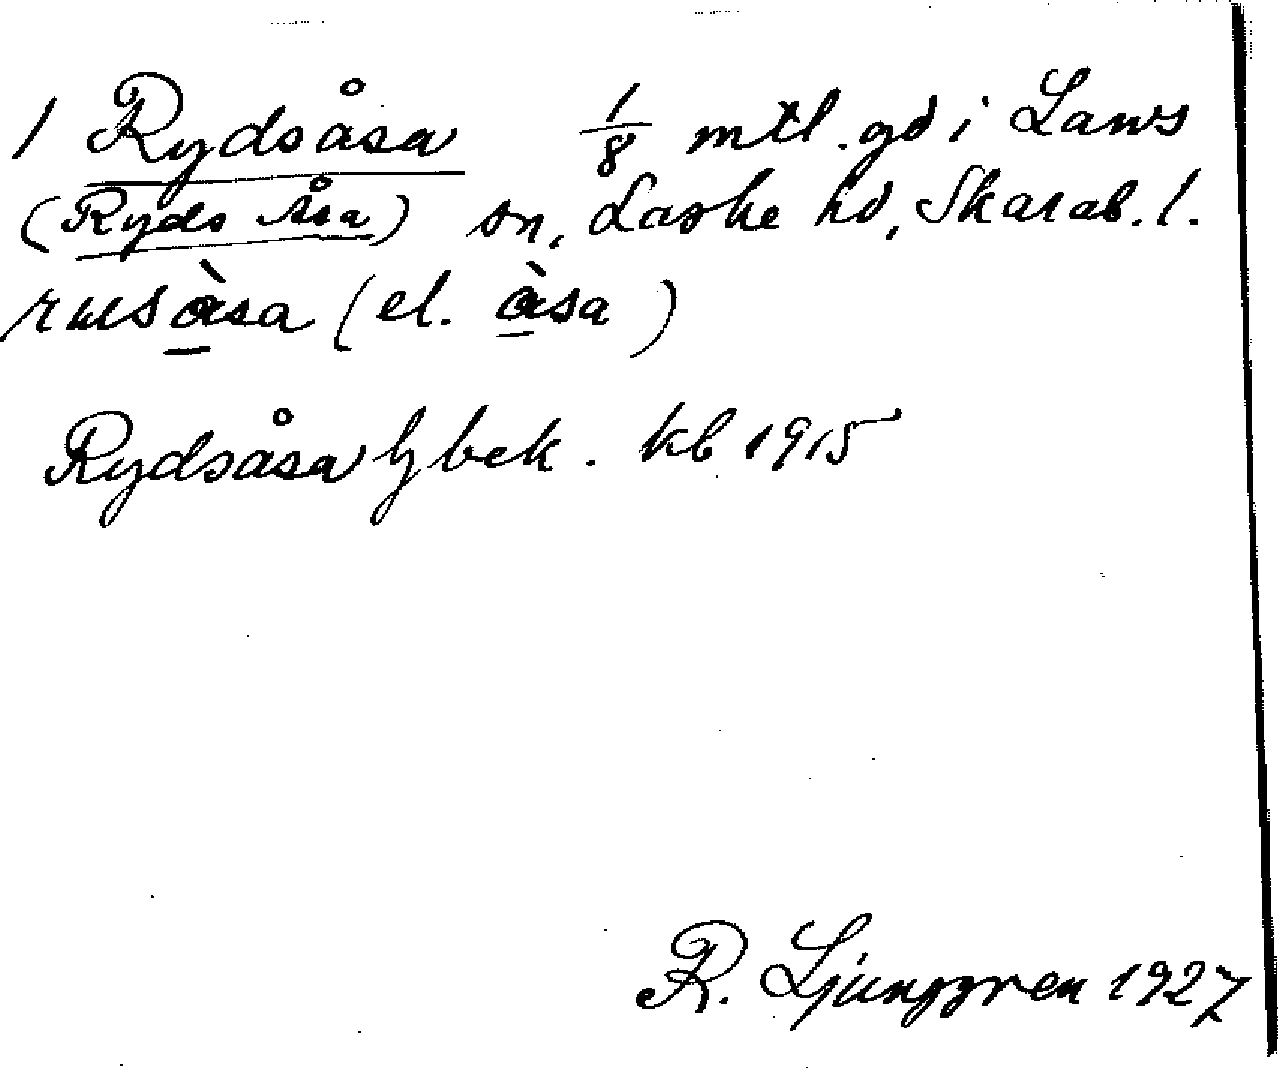 1 Rydsåsa 1/8 mtl. gd i Laws
(Ryds Åsa) sn, Laske hd, Skarab. l.
rusàsa (el. àsa)
Rydsåsa lybek. kb 1915
R. Ljunggren 1927